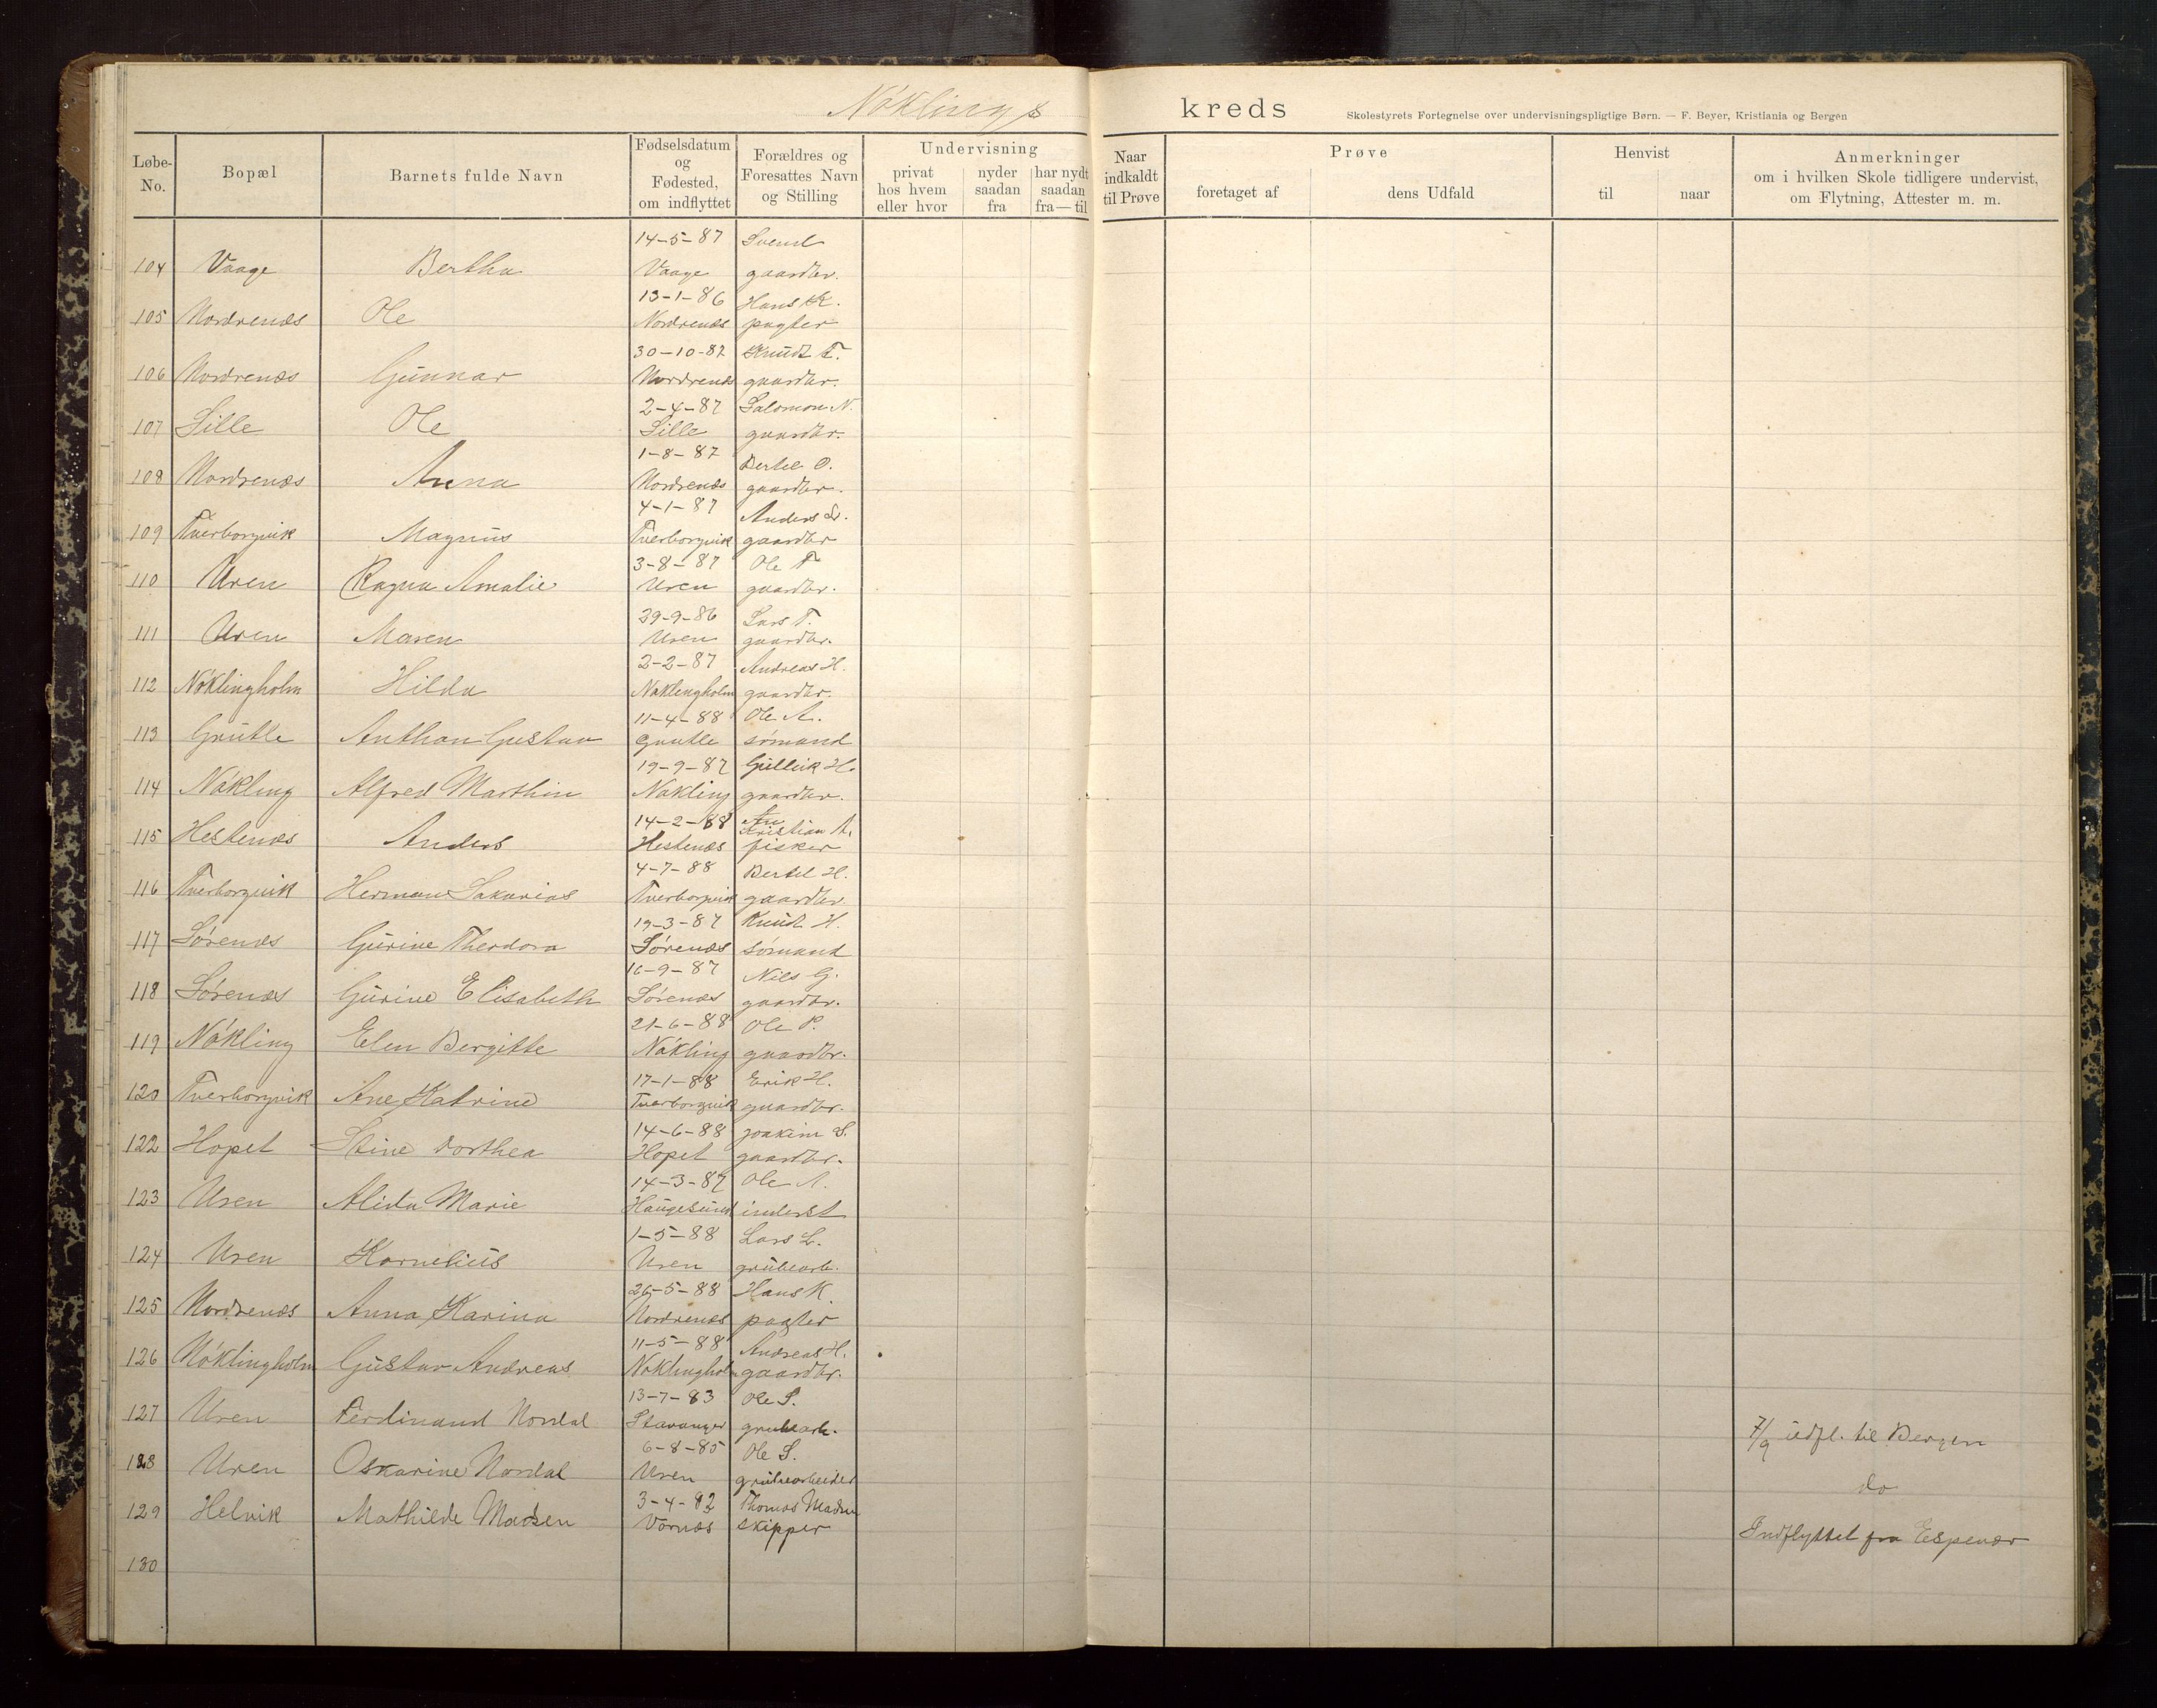 Nøklings kreds Skolestyrets Fortegnelse over undervisningspligtige Børn. — F. Beyer, Kristiania og Bergen
Løbe-No. Bopæl Barnets fulde Navn Fødselsdatum og Fødested, om indflyttet Forældres og Foresattes Navn og Stilling Undervisning privat hos hvem eller hvor nyder saadan fra har nydt saadan fra — til Naar indkaldt til Prøve Prøve foretaget af dens Udfald Henvist til naar Anmerkninger om i hvilken Skole tidligere undervist, om Flytning, Attester m. m.
14-5-87 Svend
104 Vaage Bertha Vaage gaardbr.
13-1-86 Hans K.
105 Nordrenæs Ole Nordrenæs pagter
30-10-87 Knudt T.
106 Nordrenæs Gunnar Nordrenæs gaardbr.
2-4-87 Salomon N.
107 Lille Ole Lille gaardbr.
1-8-87 Bertel O.
108 Nordrenæs Anna Nordrenæs gaardbr.
4-1-87 Anders L.
109 Tverborgvik Magnus Tverborgvik gaardbr
3-8-87 Ole T
110 Uren Ragna Amalie Uren gaardbr.
29-9-86 Lars T.
111 Uren Maren Uren gaardbr.
2-2-87 Andreas H.
112 Nøklingholm Hilda Nøklingholm gaardbr.
11-4-88 Ole A.
113 Grutle Anthon Gustav Grutle sømand
19-9-87 Gullik H.
114 Nøkling Alfred Marthin Nøkling gaardbr.
14-2-88 Kristian A.
115 Hestenæs Anders Hestenæs fisker
4-7-88 Bertel H.
116 Tverborgvik Herman Sakarias Tverborgvik gaardbr
19-3-87 Knut H.
117 Sørenæs Gurine Theodora Sørenæs sømand
16-9-87 Nils G.
118 Sørenæs Gurine Elisabeth Sørenæs gaardbr.
21-6-88 Ole P.
119 Nøkling Elen Bergitte Nøkling gaardbr.
17-1-88 Erik H.
120 Tverborgvik Ane Katrine Tverborgvik gaardbr.
14-6-88 Joakim S.
122 Hopet Stine Dorthea Hopet gaardbr.
14-3-87 Ole A.
123 Uren Alida Marie Haugesund inderst
1-5-88 Lars L.
124 Uren Kornelius Uren grubearb.
26-5-88 Hans K.
125 Nordrenæs Anna Karina Nordrenæs pagter
11-5-88 Andreas H.
126 Nøklingholm Gustav Andreas Nøklingholm gaardbr.
13-7-83 Ole S.
127 Uren Ferdinand Nordal Stavanger grubearb. 7/9 udfl. til Bergen
6-8-85 Ole S.
128 Uren Oskarine Nordal Uren grubearbeider do
3-4-82 Thomas Madsen
129 Helvik Mathilde Madsen Vornæs skipper Indflyttet fra Espevær
130